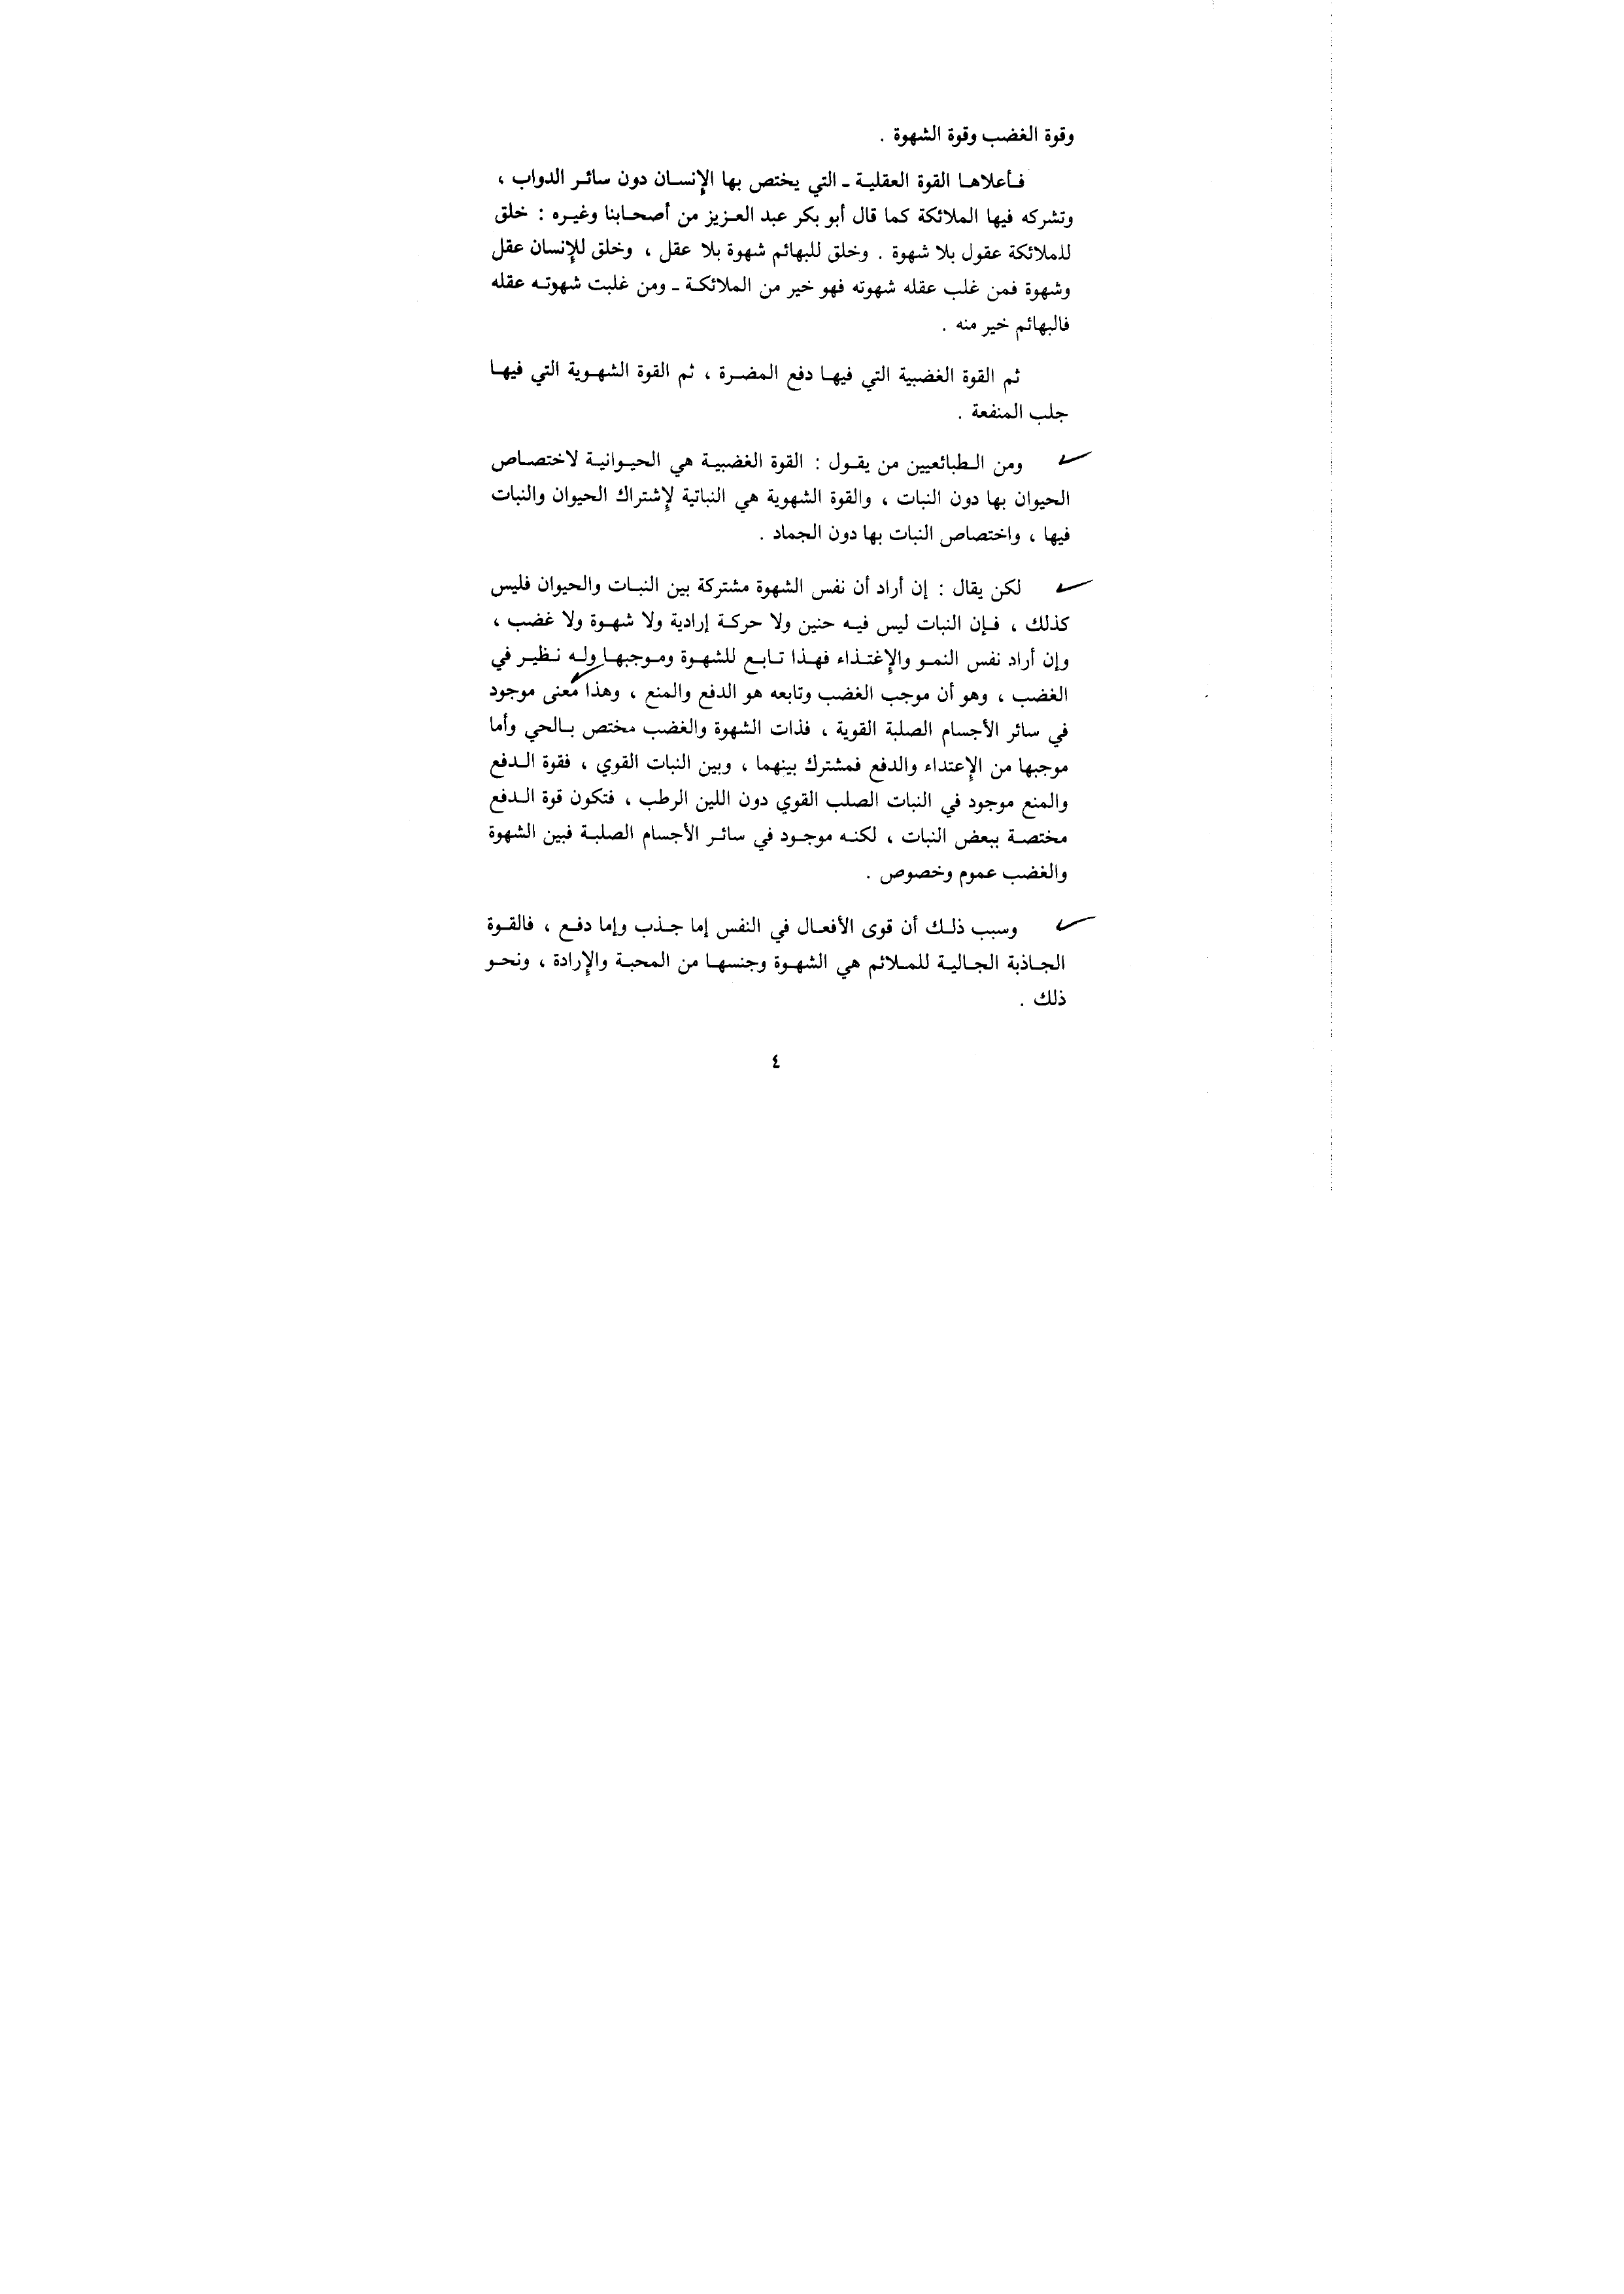 وقوة الغضب وقوة الشهوة .
فأعلاها القوة العقلية ـ التي يختص بها الإنسان دون سائر الدواب ،
وتشركه فيها الملائكة كما قال أبو بكر عبد العزيز من أصحابنا وغيره : خلق
للملائكة عقول بلا شهوة . وخلق للبهائم شهوة بلا عقل ، وخلق للإنسان عقل
وشهوة فمن غلب عقله شهوته فهو خير من الملائكة ـ ومن غلبت شهوته عقله
فالبهائم خير منه .
ثم القوة الغضبية التي فيها دفع المضرة ، ثم القوة الشهوية التي فيها
جلب المنفعة .
ومن الطبائعيين من يقول : القوة الغضبية هي الحيوانية لاختصاص
الحيوان بها دون النبات ، والقوة الشهوية هي النباتية لإشتراك الحيوان والنبات
فيها ، واختصاص النبات بها دون الجماد .
لكن يقال : إن أراد أن نفس الشهوة مشتركة بين النبات والحيوان فليس
كذلك ، فإن النبات ليس فيه حنين ولا حركة إرادية ولا شهوة ولا غضب ،
وإن أراد نفس النمو والإغتذاء فهذا تابع للشهوة وموجبها وله نظير في
الغضب ، وهو أن موجب الغضب وتابعه هو الدفع والمنع ، وهذا معنى موجود
في سائر الأجسام الصلبة القوية ، فذات الشهوة والغضب مختص بالحي وأما
موجبها من الإعتداء والدفع فمشترك بينهما ، وبين النبات القوي ، فقوة الدفع
والمنع موجود في النبات الصلب القوي دون اللين الرطب ، فتكون قوة الدفع
مختصة ببعض النبات ، لكنه موجود في سائر الأجسام الصلبة فبين الشهوة
والغضب عموم وخصوص .
وسبب ذلك أن قوى الأفعال في النفس إما جذب وإما دفع ، فالقوة
الجاذبة الجالية للملائم هي الشهوة وجنسها من المحبة والإرادة ، ونحو
ذلك .
٤